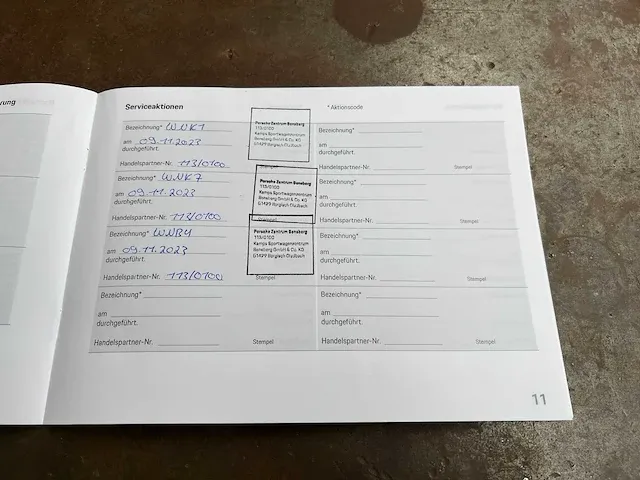 Serviceaktionen
* Aktionscode
Bezeichnung* WNK1
am 09.11.2023
durchgeführt.
Handelspartner-Nr. 113/0100
Porsche Zentrum Bensberg
113/0100
Kamps Sportwagenzentrum
Bensberg GmbH & Co. KG
51429 Bergisch Gladbach
Bezeichnung* WNK7
am 09.11.2023
durchgeführt.
Handelspartner-Nr. 113/0100
Stempel
Porsche Zentrum Bensberg
113/0100
Kamps Sportwagenzentrum
Bensberg GmbH & Co. KG
51429 Bergisch Gladbach
Bezeichnung* WNB4
am 09.11.2023
durchgeführt.
Handelspartner-Nr. 113/0100
Stempel
Porsche Zentrum Bensberg
113/0100
Kamps Sportwagenzentrum
Bensberg GmbH & Co. KG
51429 Bergisch Gladbach
Bezeichnung*
am
durchgeführt.
Handelspartner-Nr.
Stempel
Bezeichnung*
am
durchgeführt.
Handelspartner-Nr.
Stempel
Bezeichnung*
am
durchgeführt.
Handelspartner-Nr.
Stempel
Bezeichnung*
am
durchgeführt.
Handelspartner-Nr.
Stempel
Bezeichnung*
am
durchgeführt.
Handelspartner-Nr.
Stempel
11